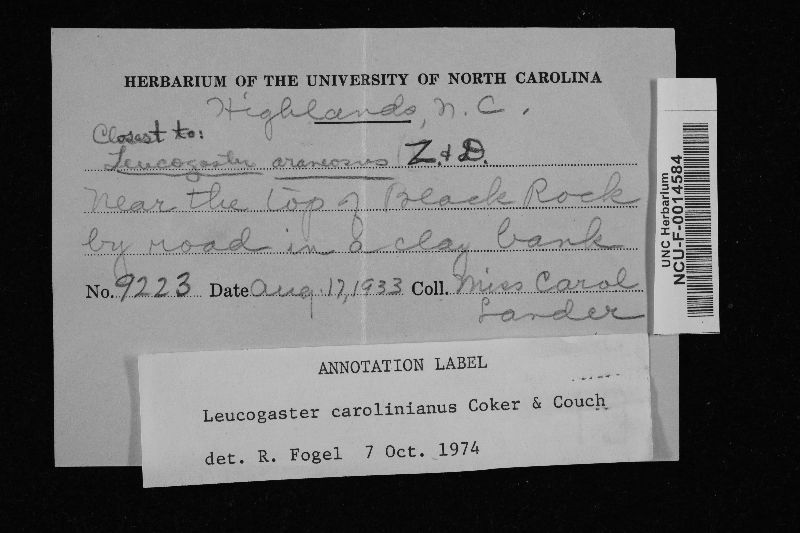 HERBARIUM OF THE UNIVERSITY OF NORTH CAROLINA
Highlands, N.C.
Closest to:
Leucogaster araneosus Z. & D.
Near the top of Black Rock
by road in a clay bank
No. 9223 Date Aug. 17, 1933 Coll. Miss Carol
Lander
UNC Herbarium
NCU-F-0014584
ANNOTATION LABEL
Leucogaster carolinianus Coker & Couch
det. R. Fogel 7 Oct. 1974